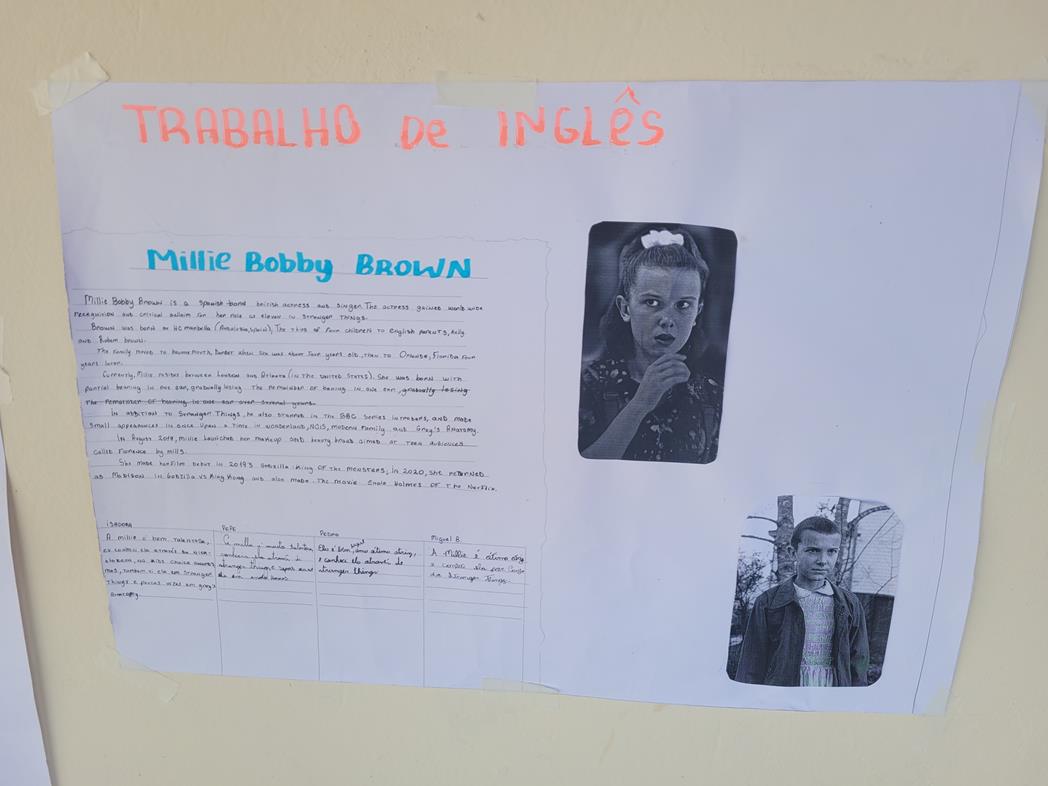 TRABALHO De INGLÊS
Millie Bobby BROWN
Millie Bobby Brown is a spanish-bond british actress and singer. The actress gained world wide
recognition and critical acclaim for her role as eleven in Stranger Things.
Brown was born in Marbella (Andalusia, Spain), The third of four children to English parents, Kelly
and Robert brown.
The family moved to when she was about four years old, then to Orlando, Florida four
years later.
Currently, Millie resides between London and Atlanta (in the United States). She was born with
partial hearing in one ear, gradually losing The remainder of hearing in one ear, gradually losing
the remainder of hearing in one ear over several years.
In addition to Stranger Things, he also starred in the BBC Series intruders, and made
small appearances in once upon a Time in wonderland, NCIS, modern family and Grey's Anatomy.
In August 2019, millie launched her makeup and beauty brand aimed at teen audiences
called florence by mills.
She made her film debut in 2019's Godzilla: King of the monsters; in 2020, she returned
as Madison in Godzilla vs King Kong and also made The movie Enola Holmes OF The Netflix.
ISADORA
A millie é bem talentosa,
eu conheci ela através da nicke-
lodeon, no kids choice awards
mas, também vi ela em stranger
Things e poucas vezes em greys
anatomy.
PEPE
a millie é muito talentosa
conheci ela através de
stranger things,
Pedro
Ela é bem legal, uma otima atriz,
e conheci ela através de
stranger things
Miguel B.
A Millie é ótima atriz
e conheci ela por causa
de Stranger Things.